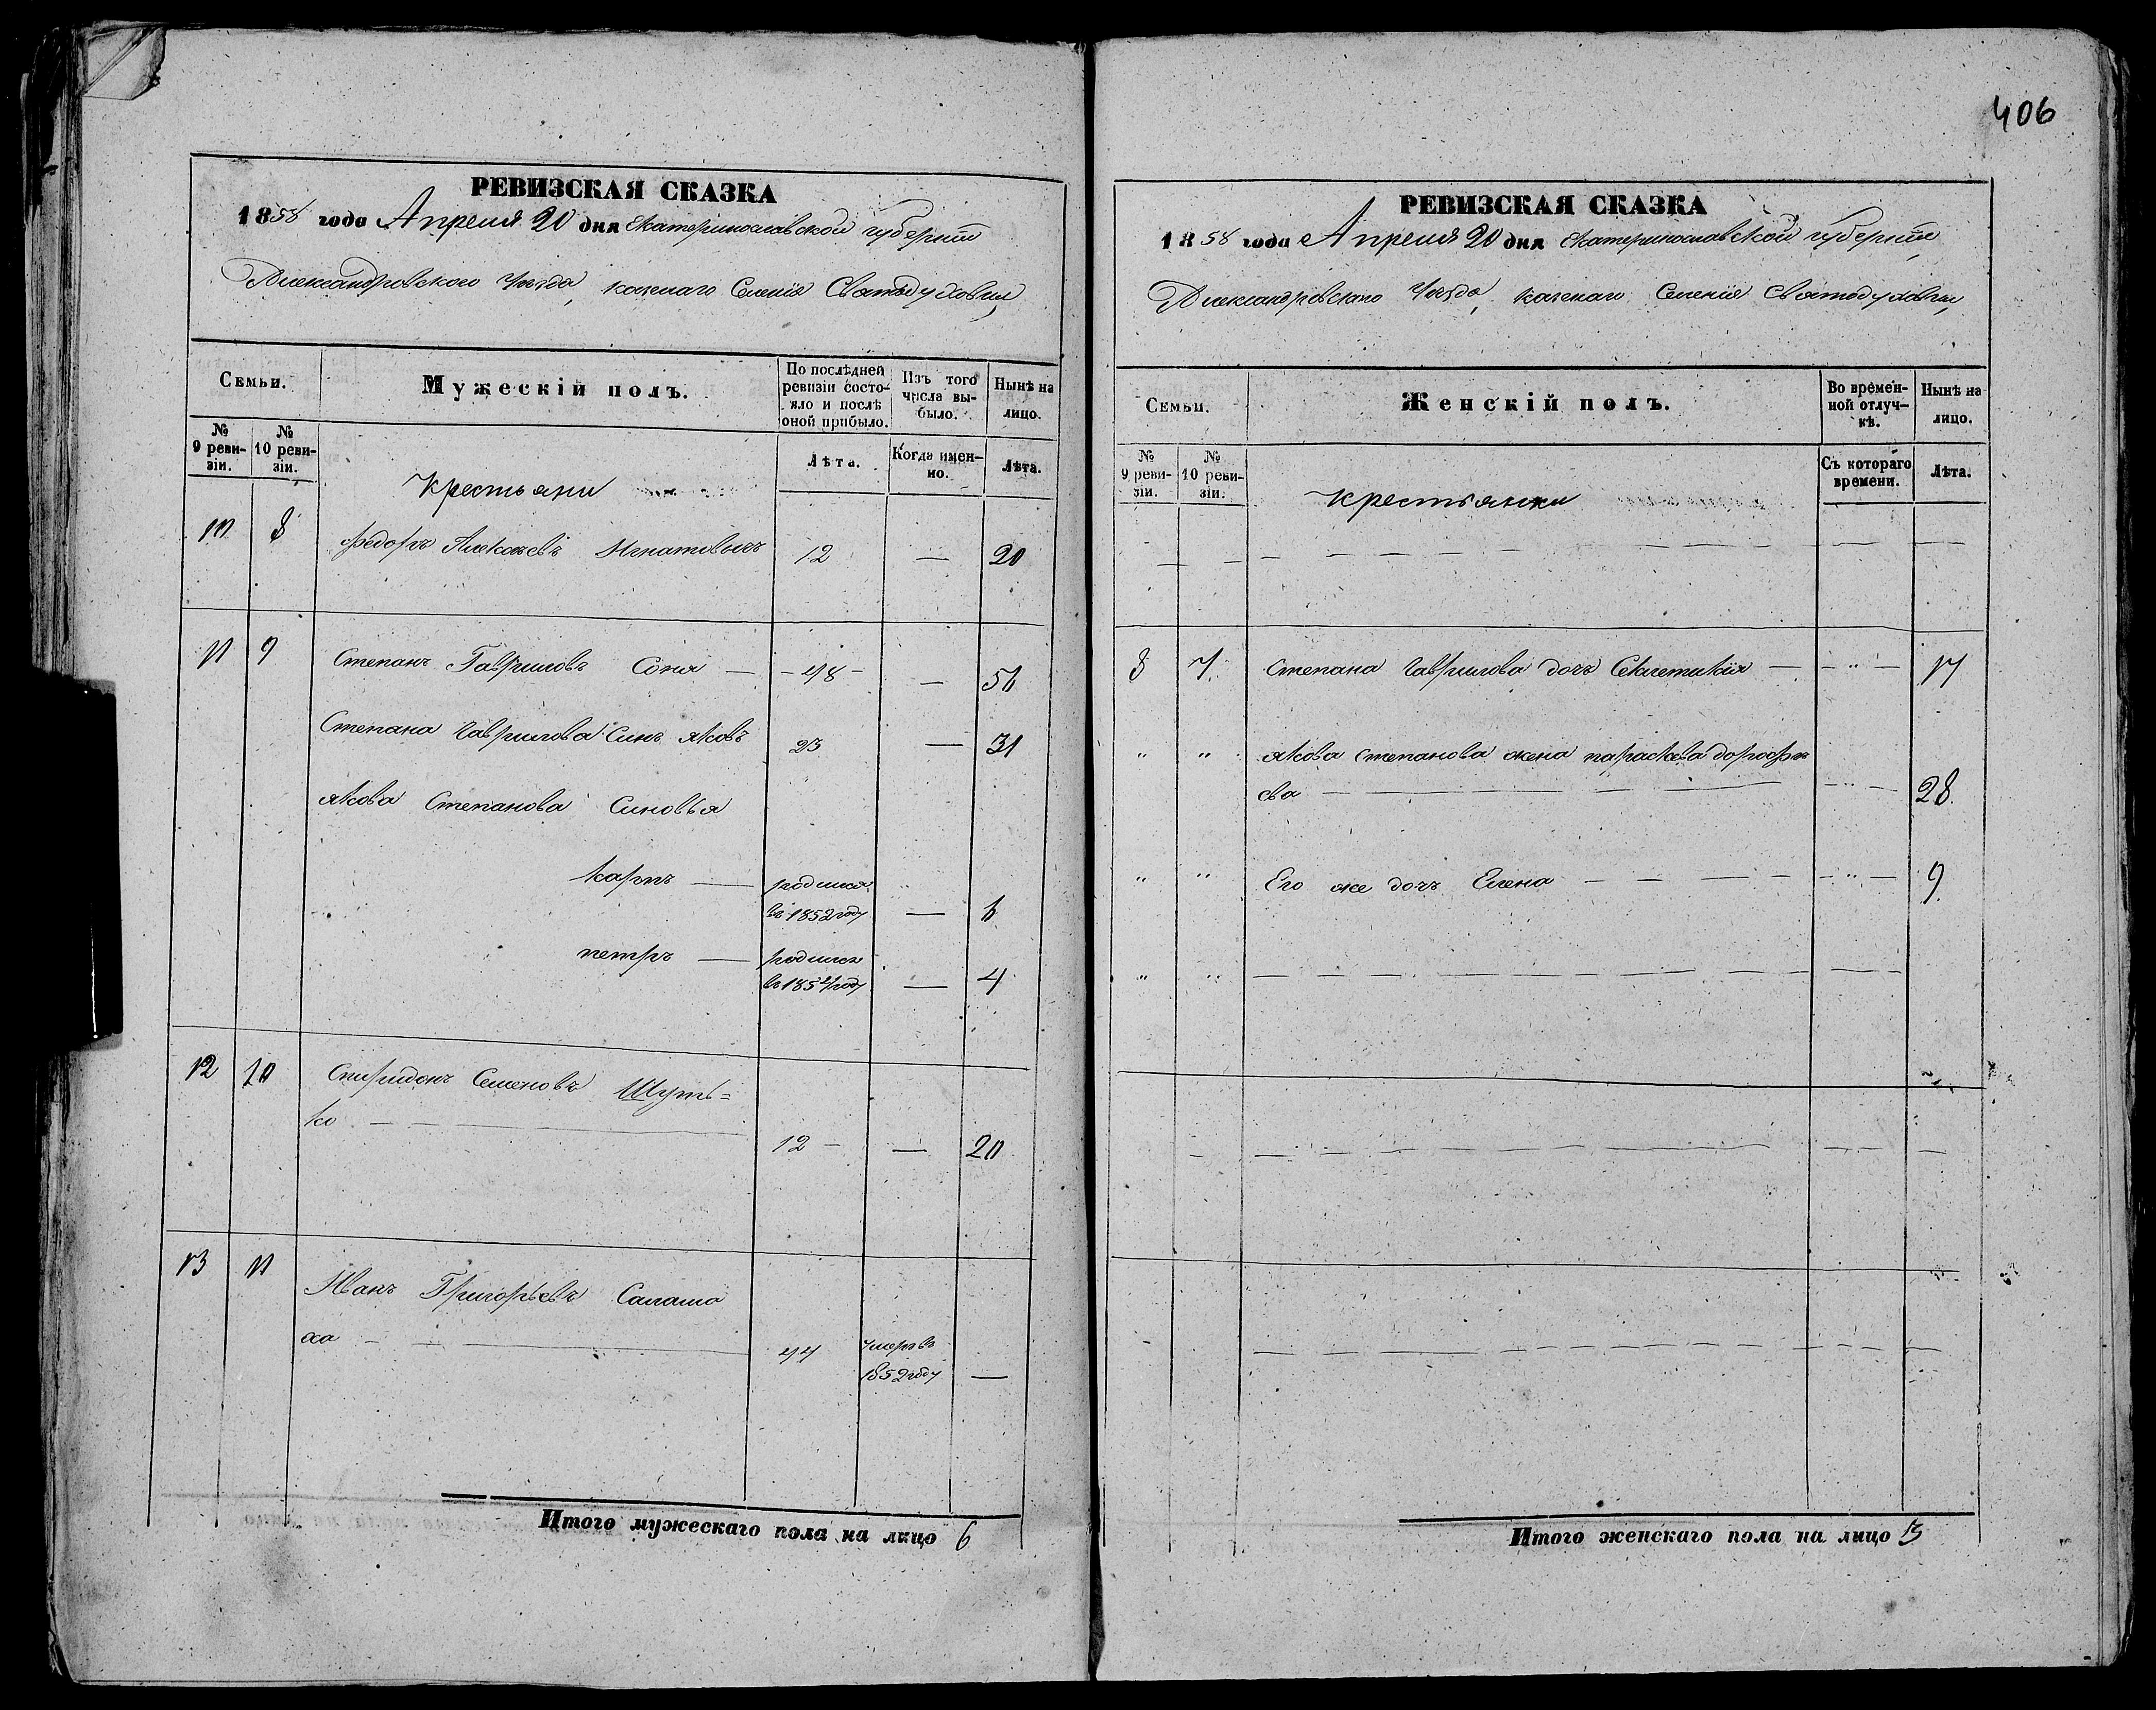 406
РЕВИЗСКАЯ СКАЗКА
1858 года Апреля 20 дня Екатеринославской губернiи
Александровского Уезда, казенаго Селенiя Святодуховки,
Семьи.
Мужескiй полъ.
По послѣдней ревизiи состо-
яло и послѣ
оной прибыло.
Изъ того
числа вы-
было.
Нынѣ на
лицо.
№
9 реви-
зiи.
№
10 реви-
зiи.
Лѣта.
Когда имен-
но.
Лѣта.
Крестьяни
8 Федоръ Алексѣевъ Игнатовъ 12 — 20
11 9 Степанъ Гавриловъ Соня — 48 — 56
Степана Гаврилова Синъ Яковъ 23 — 31
Якова Степанова Синовья
Карпъ — родился
въ 1852 году — 6
петръ — родился
въ 1854 году — 4
12 10 Спиридонъ Семеновъ Шуть=
ко — 12 — — 20
13 11 Иванъ Григорьевъ Салама
ха — 44 умеръ въ
1852 году —
Итого мужескаго пола на лицо 6
РЕВИЗСКАЯ СКАЗКА
1858 года Апреля 20 дня Екатеринославской губернiи,
Александровскаго Уезда, казенаго Селенiя Святодуховки,
Семьи.
Женскiй полъ.
Во времен-
ной отлуч-
кѣ.
Нынѣ на
лицо.
№
9 реви-
зiи.
№
10 реви-
зiи.
Съ котораго
времени.
Лѣта.
крестьянки
8 7 Степана Гаврилова дочъ Секлетикiя — — " — 17
" " Якова Степанова жена параскева дорофѣ
ева — — " — 28.
" " Его же дочъ Елена — — " — 9.
" "
Итого женскаго пола на лицо 3